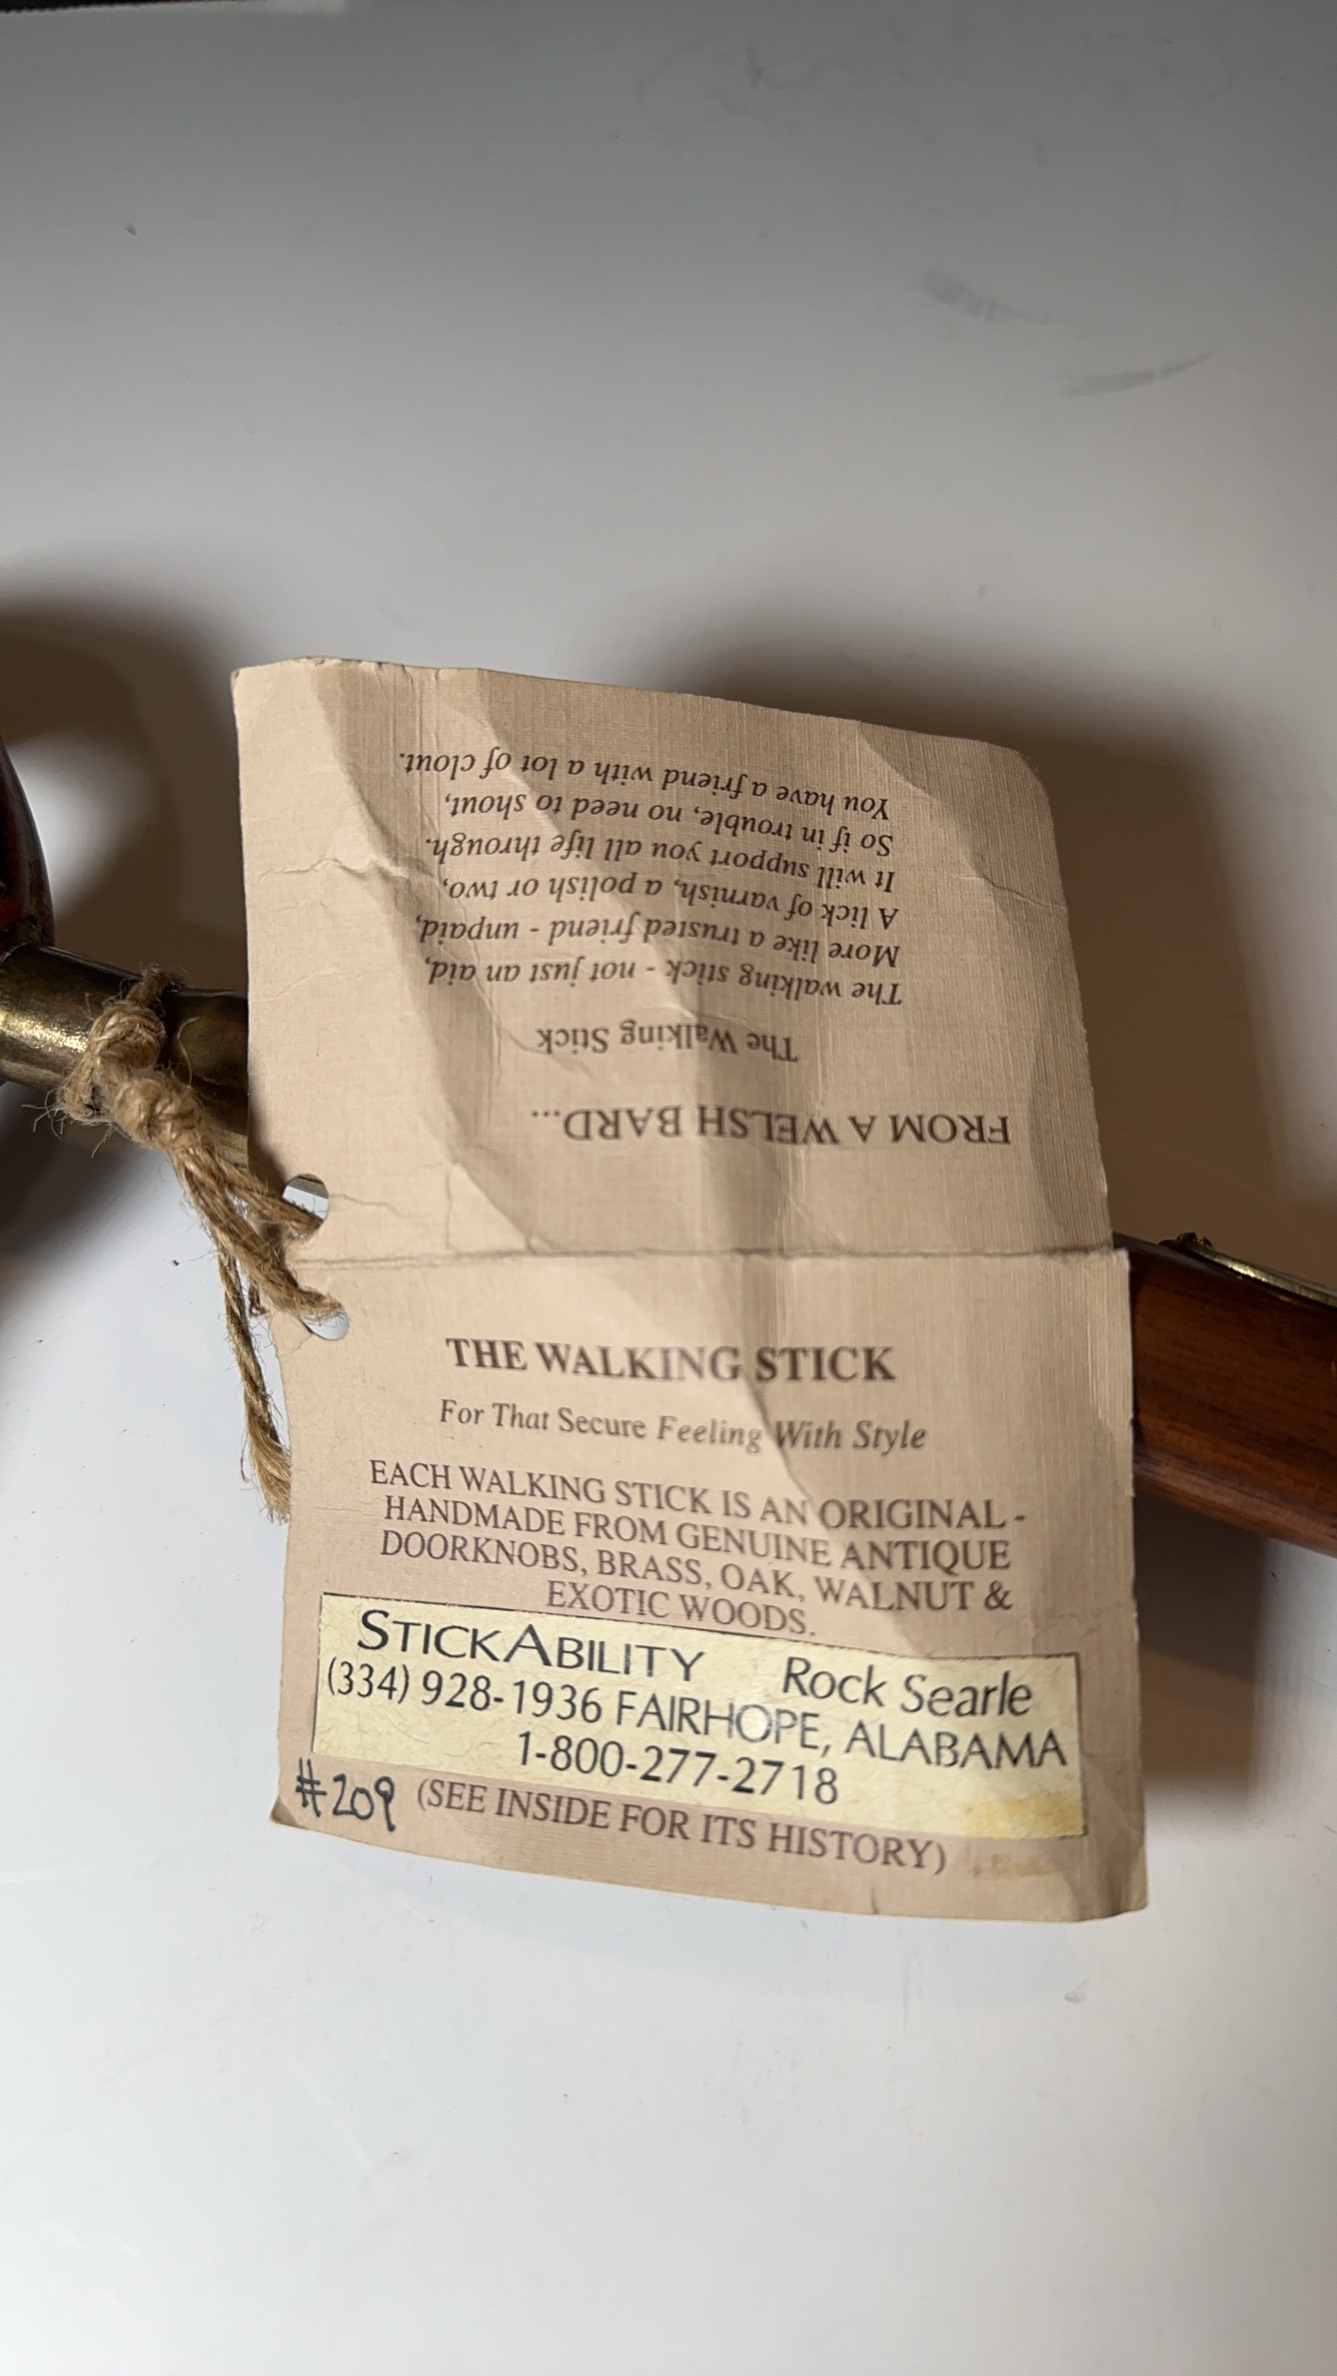 FROM A WELSH BARD...
The Walking Stick
The walking stick - not just an aid,
More like a trusted friend - unpaid,
A lick of varnish, a polish or two,
It will support you all life through.
So if in trouble, no need to shout,
You have a friend with a lot of clout.
THE WALKING STICK
For That Secure Feeling With Style
EACH WALKING STICK IS AN ORIGINAL -
HANDMADE FROM GENUINE ANTIQUE
DOORKNOBS, BRASS, OAK, WALNUT &
EXOTIC WOODS.
STICKABILITY Rock Searle
(334) 928-1936 FAIRHOPE, ALABAMA
1-800-277-2718
#209 (SEE INSIDE FOR ITS HISTORY)